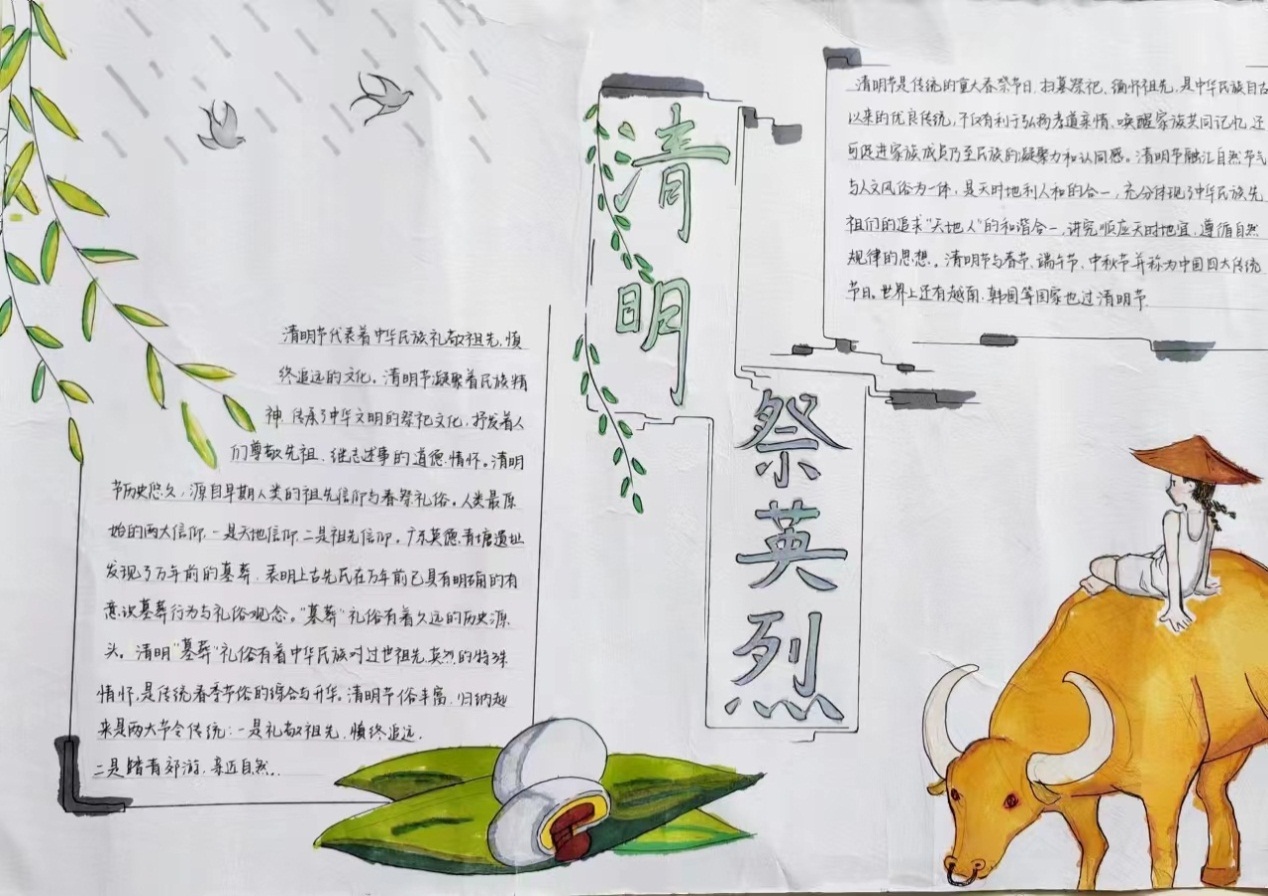 清明
祭英烈
清明节是传统的重大春祭节日，扫墓祭祀、缅怀祖先，是中华民族自古
以来的优良传统，不仅有利于弘扬孝道亲情、唤醒家族共同记忆，还
可促进家族成员乃至民族的凝聚力和认同感。清明节融汇自然节气
与人文风俗为一体，是天时地利人和的合一，充分体现了中华民族先
祖们的追求“天地人”的和谐合一，讲究顺应天时地宜、遵循自然
规律的思想。清明节与春节、端午节、中秋节并称为中国四大传统
节日。世界上还有越南、韩国等国家也过清明节.
清明节代表着中华民族礼敬祖先、慎
终追远的文化。清明节凝聚着民族精
神，传承了中华文明的祭祀文化，抒发着人
们尊敬先祖、继志述事的道德情怀。清明
节历史悠久，源自早期人类的祖先信仰与春祭礼俗。人类最原
始的两大信仰，一是天地信仰，二是祖先信仰。广东英德青塘遗址
发现了万年前的墓葬，表明上古先民在万年前已具有明确的有
意识墓葬行为与礼俗观念。“墓葬”礼俗有着久远的历史源
头。清明“墓葬”礼俗有着中华民族对过世祖先、英烈的特殊
情怀，是传统春季节俗的综合与升华。清明节俗丰富，归纳起
来是两大节令传统：一是礼敬祖先，慎终追远.
二是踏青郊游、亲近自然.